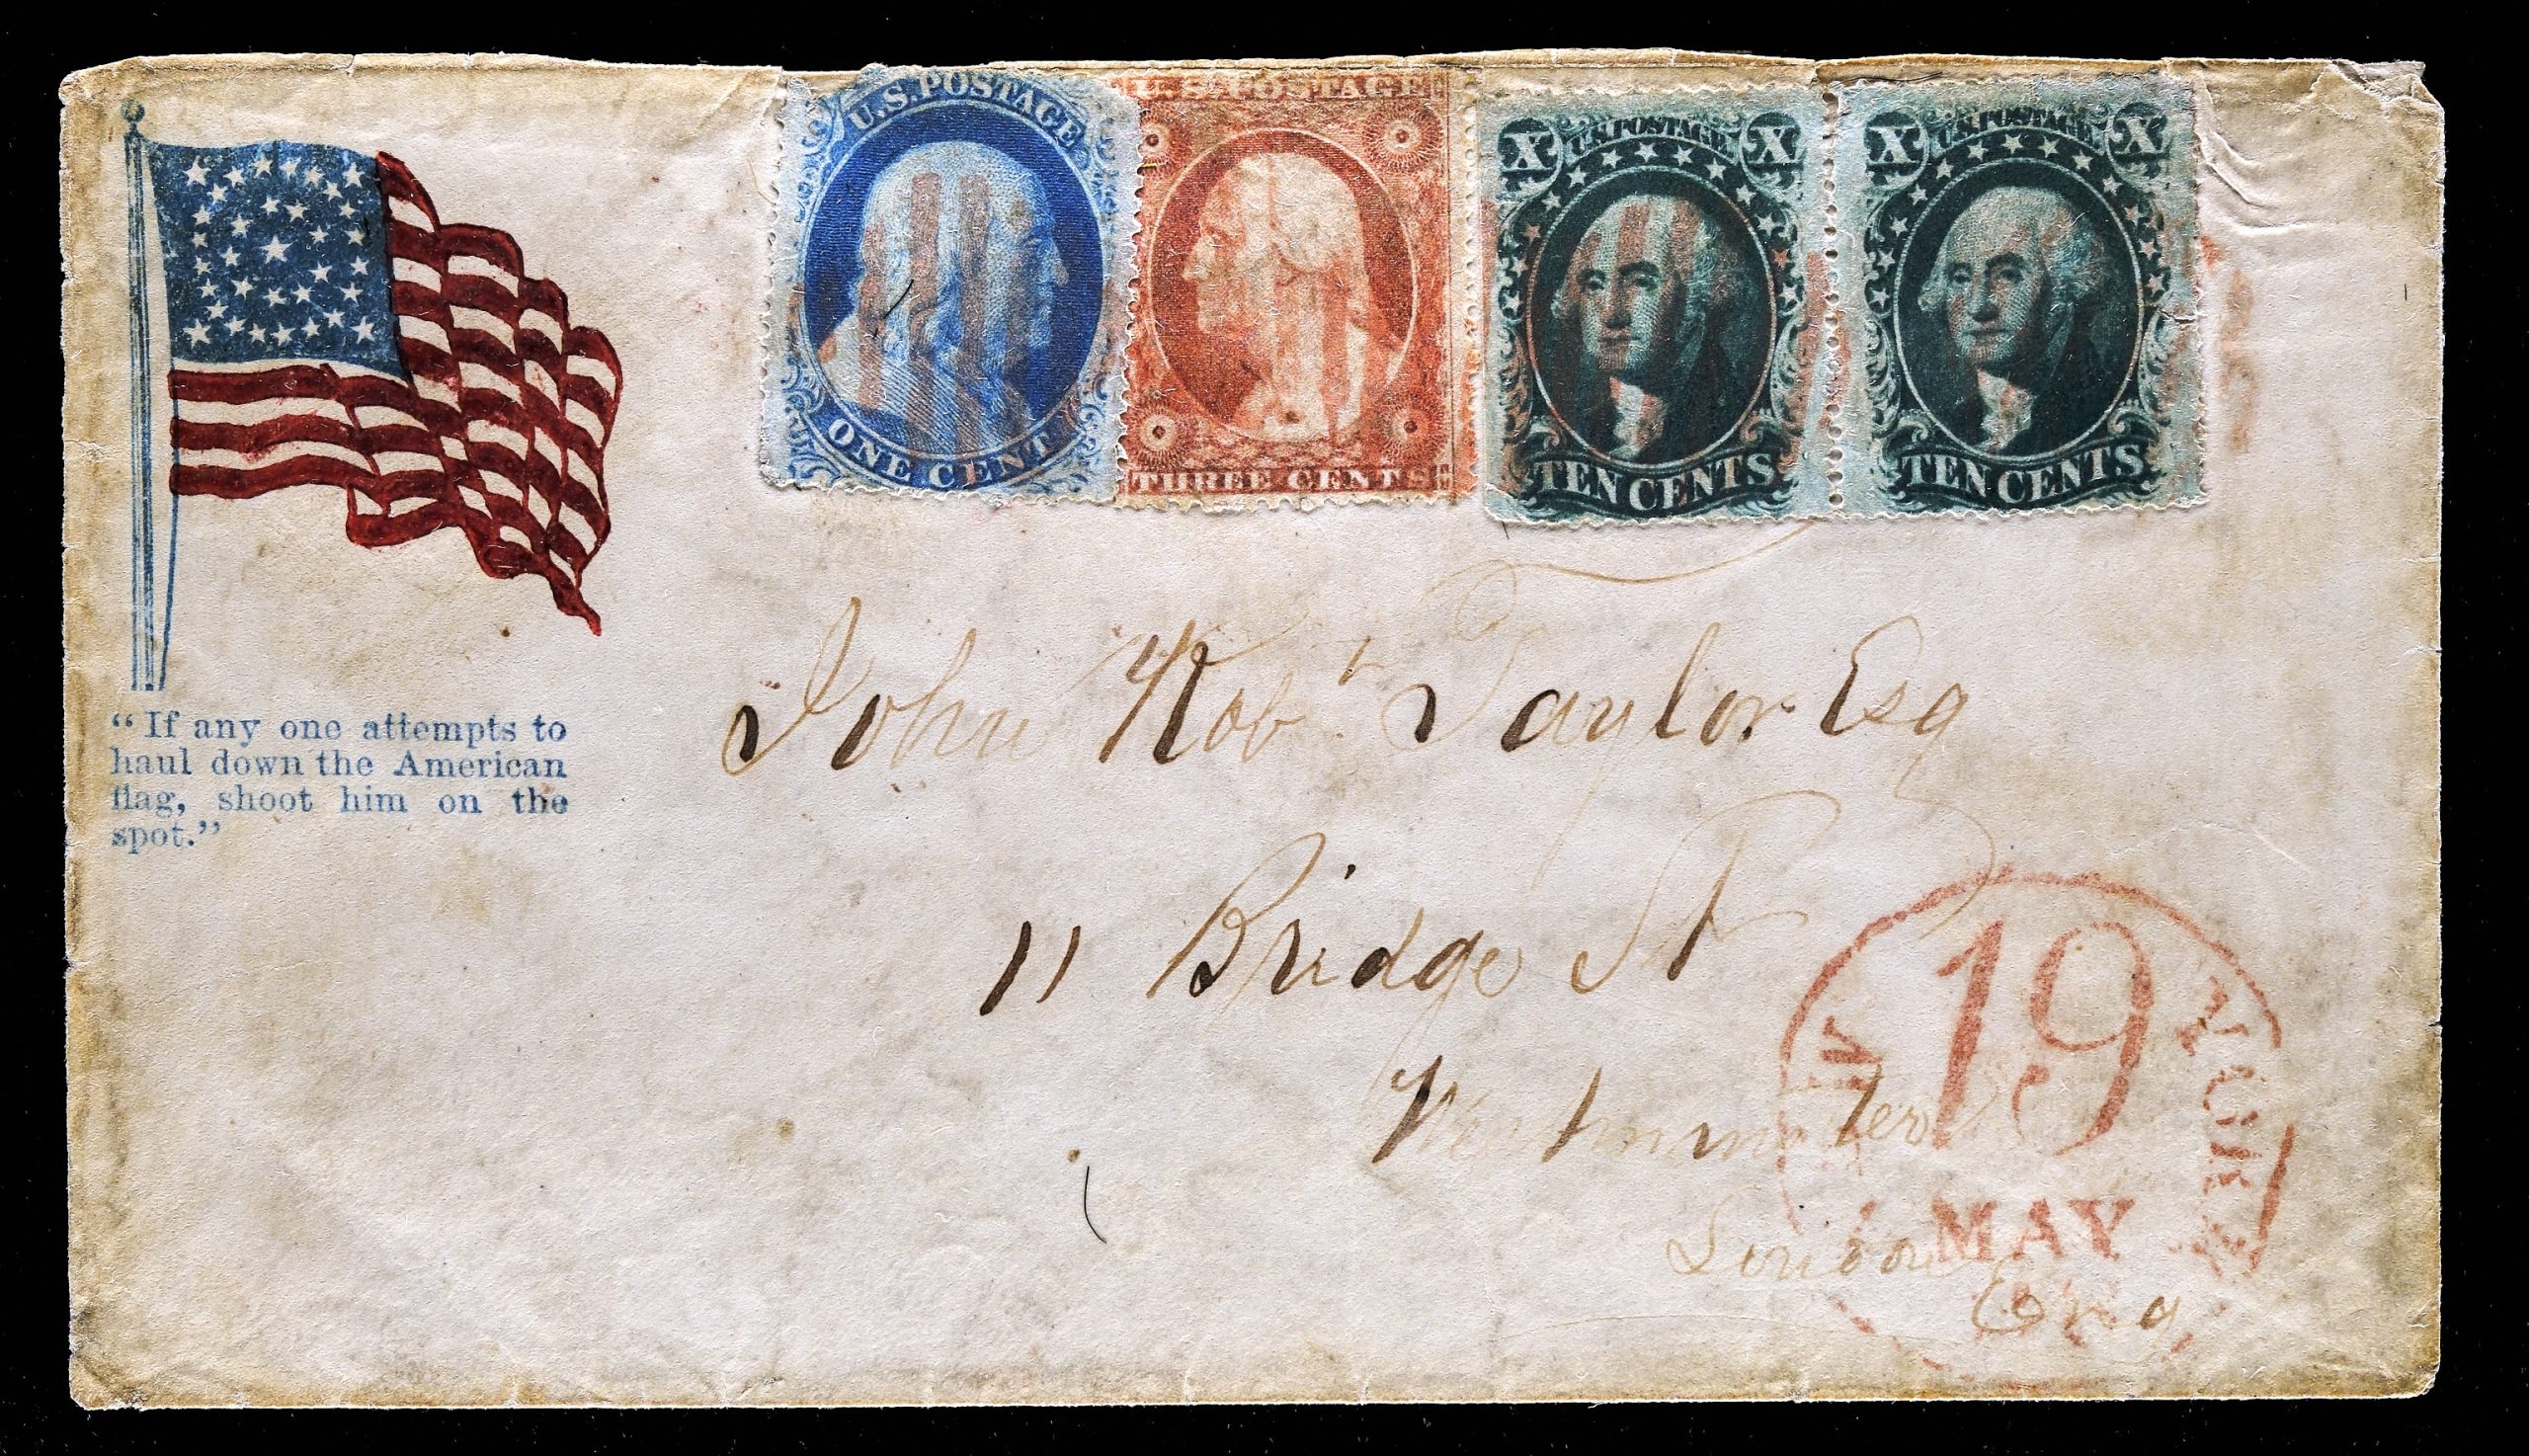 U.S. POSTAGE
ONE CENT
U.S. POSTAGE
THREE CENTS
X U.S. POSTAGE X
TEN CENTS
X U.S. POSTAGE X
TEN CENTS
“If any one attempts to
haul down the American
flag, shoot him on the
spot.”
John Robt Taylor Esq
11 Bridge St
Westminster
London
Eng
NEW YORK
19
MAY